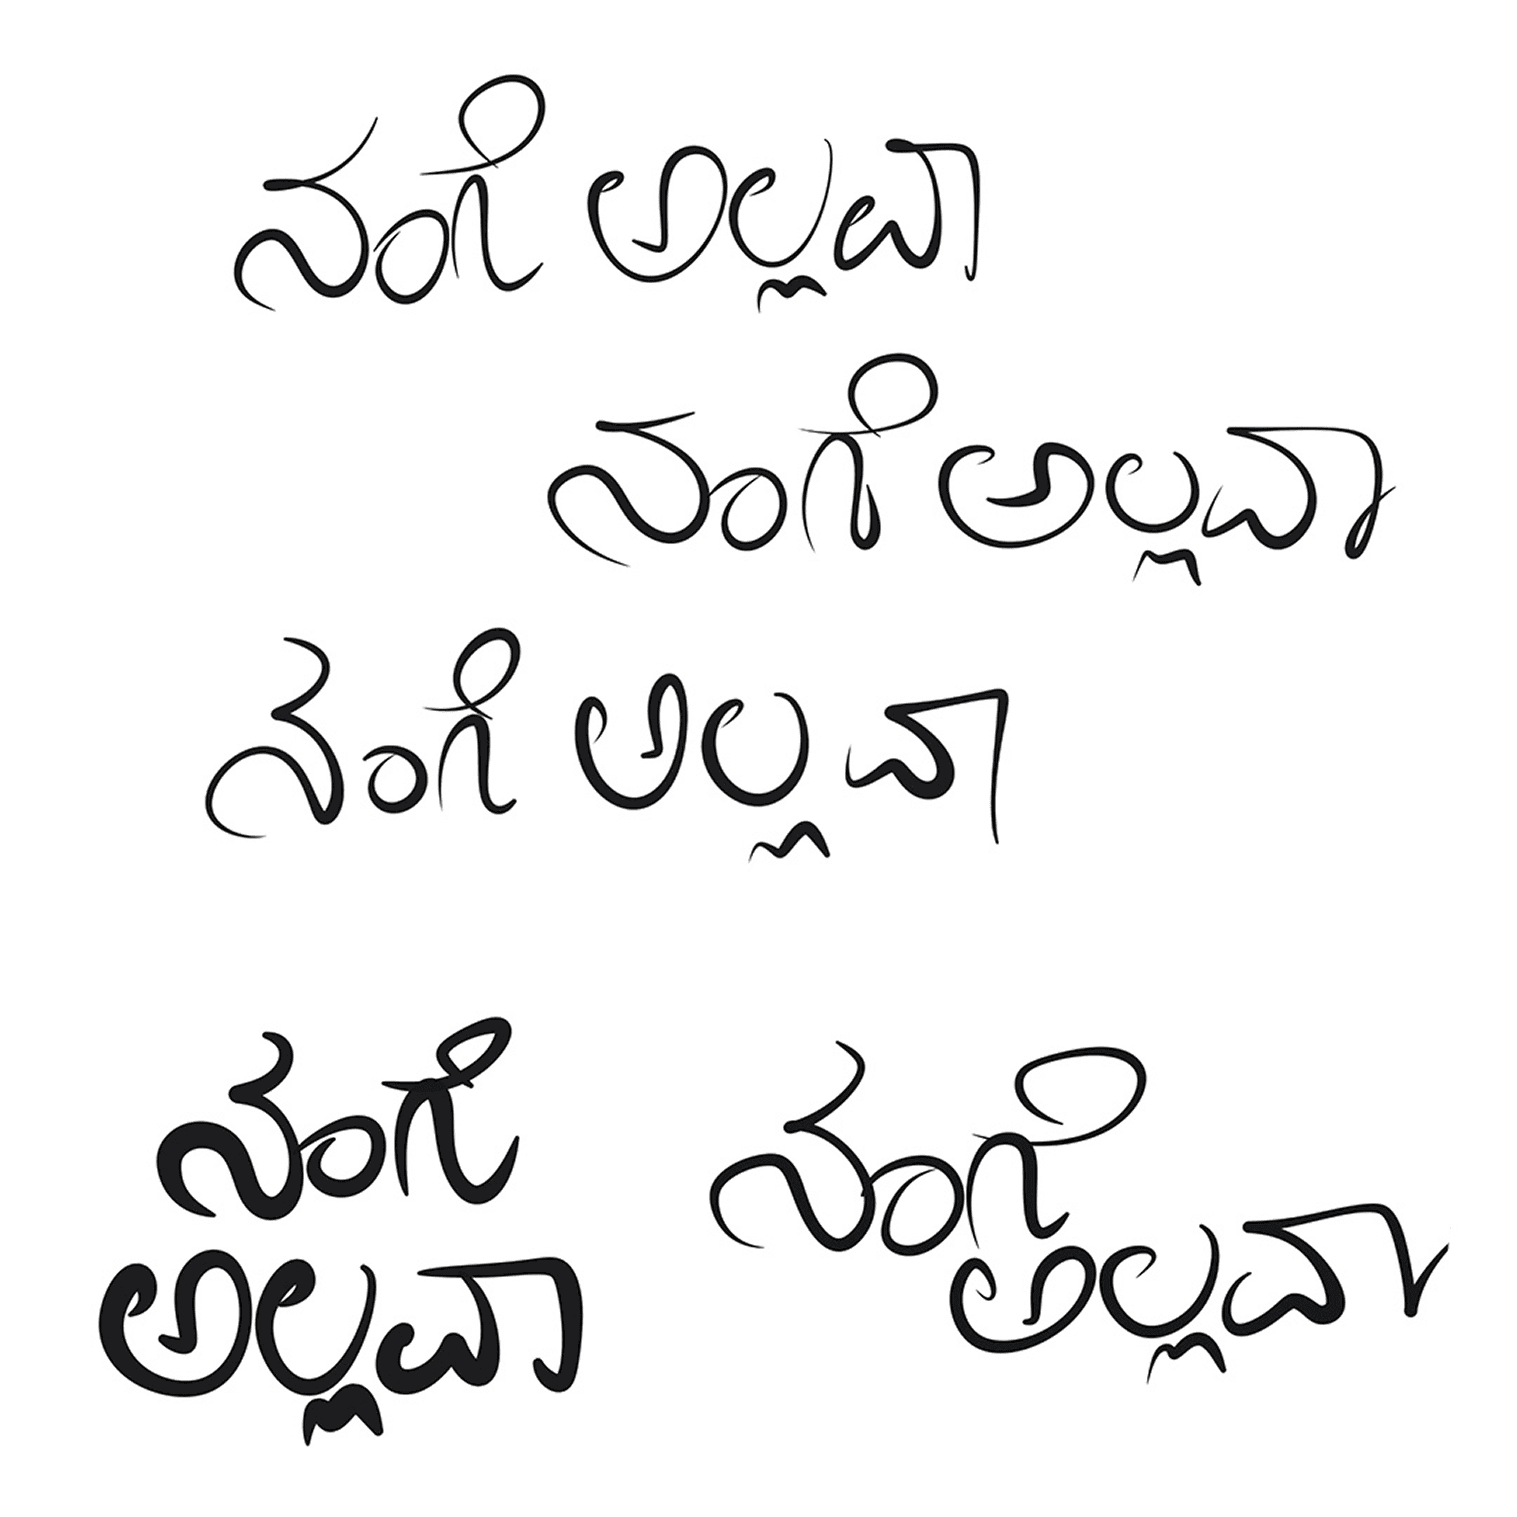 ನಂಗೆ ಅಲ್ಲವಾ
ನಂಗೆ ಅಲ್ಲವಾ
ನಂಗೆ ಅಲ್ಲವಾ
ನಂಗೆ
ಅಲ್ಲವಾ
ನಂಗೆ
ಅಲ್ಲವಾ